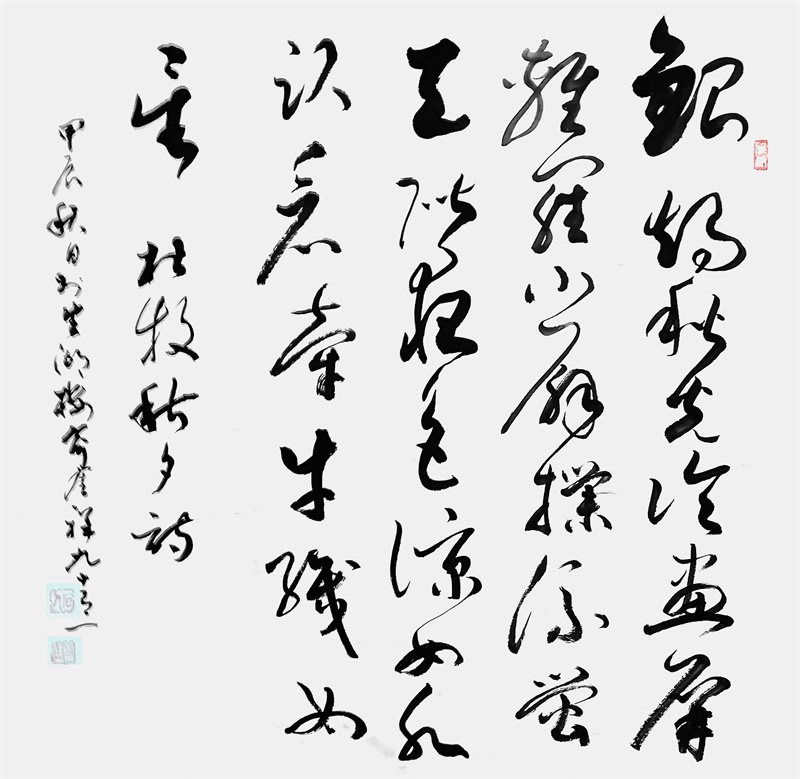 銀燭秋光冷畫屏
輕羅小扇撲流螢
天階夜色涼如水
臥看牽牛織女
星 杜牧秋夕詩
甲辰秋日於湖樓祥九十又一